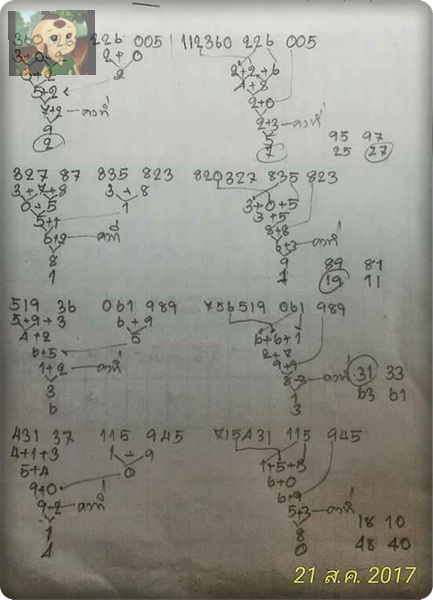 360 28 226 005 112360 226 005
3+0 2 2+0 2+2+6
3+2 2 4+8
5+2 2+0
7+2 คงที่ 2+3 คงที่
9 5
2 7
95 97
25 27
327 87 835 823 820327 835 823
3+7+8 3+8 3+0+5
0+5 1 3+5
5+1 8+8
6+2 คงที่ 6+3 คงที่
8 9
1 1
89 81
19 11
519 36 061 989 756519 061 989
5+9+3 6+9 6+6+1
4+2 5 2+8
6+5 9+9
1+2 คงที่ 8+3 คงที่
3 1
6 3
31 33
63 61
431 37 115 945 715431 115 945
4+1+3 1+9 1+5+5
5+4 0 6+0
9+0 6+9
9+2 คงที่ 5+3 คงที่
1 8
4 0
18 10
48 40
21 ส.ค. 2017